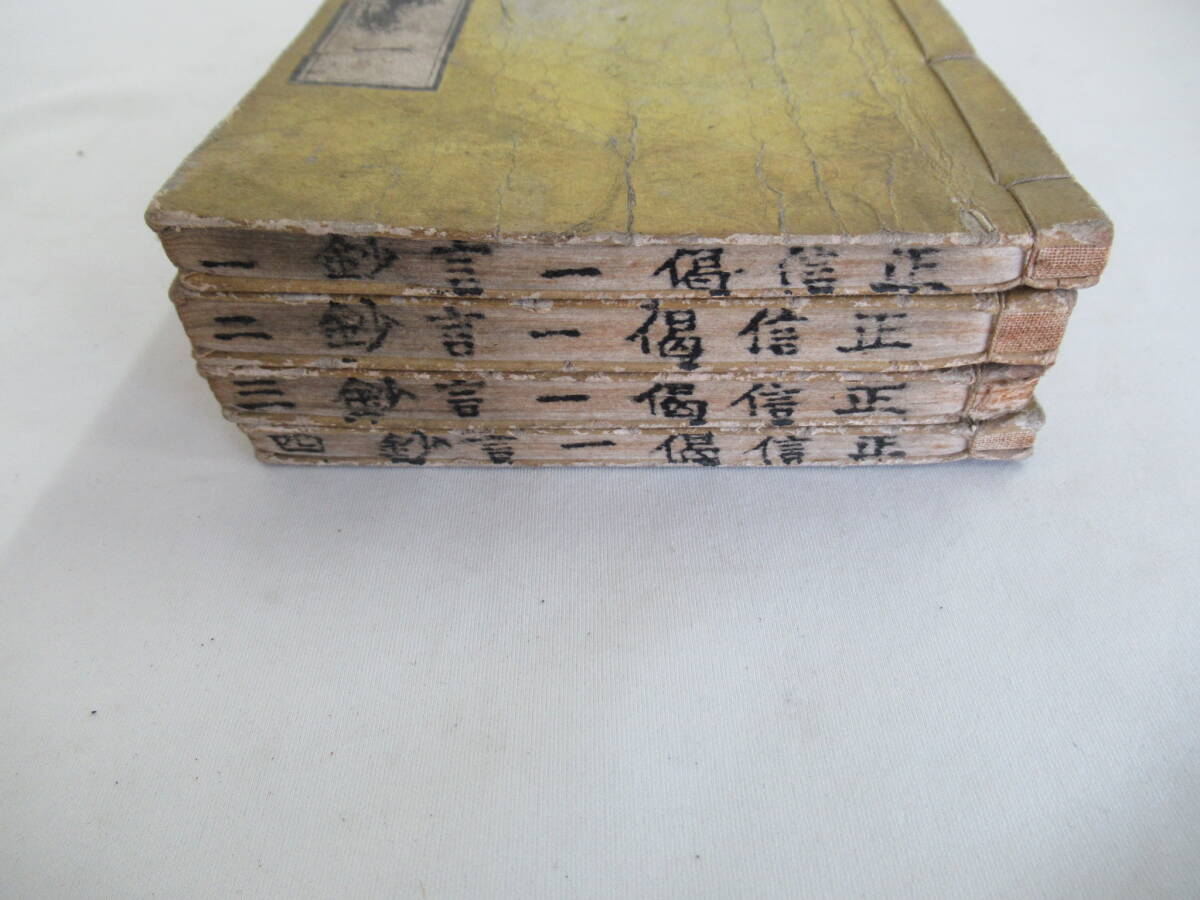 一
正信偈一言鈔 一
正信偈一言鈔 二
正信偈一言鈔 三
正信偈一言鈔 四